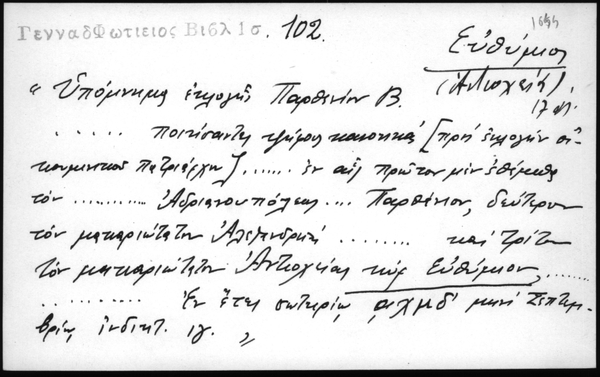 1644
ΓενναδΦωτιειος Βιβλ 1σ. 102.
Εὐθύμιος
(Ἀντιοχείας).
17 αἰ.
" Ὑπόμνημα ἐκλογῆς Παρθενίου Β.
..... ποιήσαντες ψήφους κανονικὰς [πρὸς ἐκλογὴν οἰ-
κουμενικοῦ Πατριάρχου] ...... ἐν αἷς πρῶτον μὲν ἐθέμεθα
τὸν .......... Ἀδριανουπόλεως .... Παρθένιον, δεύτερον
τὸν μακαριώτατον Ἀλεξανδρείας ........ καὶ τρίτον
τὸν μακαριώτατον Ἀντιοχείας κὺρ Εὐθύμιον, ......
.......... Ἐν ἔτει σωτηρίῳ ͵αχμδ' μηνὶ Σεπτεμ-
βρίῳ, ἰνδικτ. ιγ. "